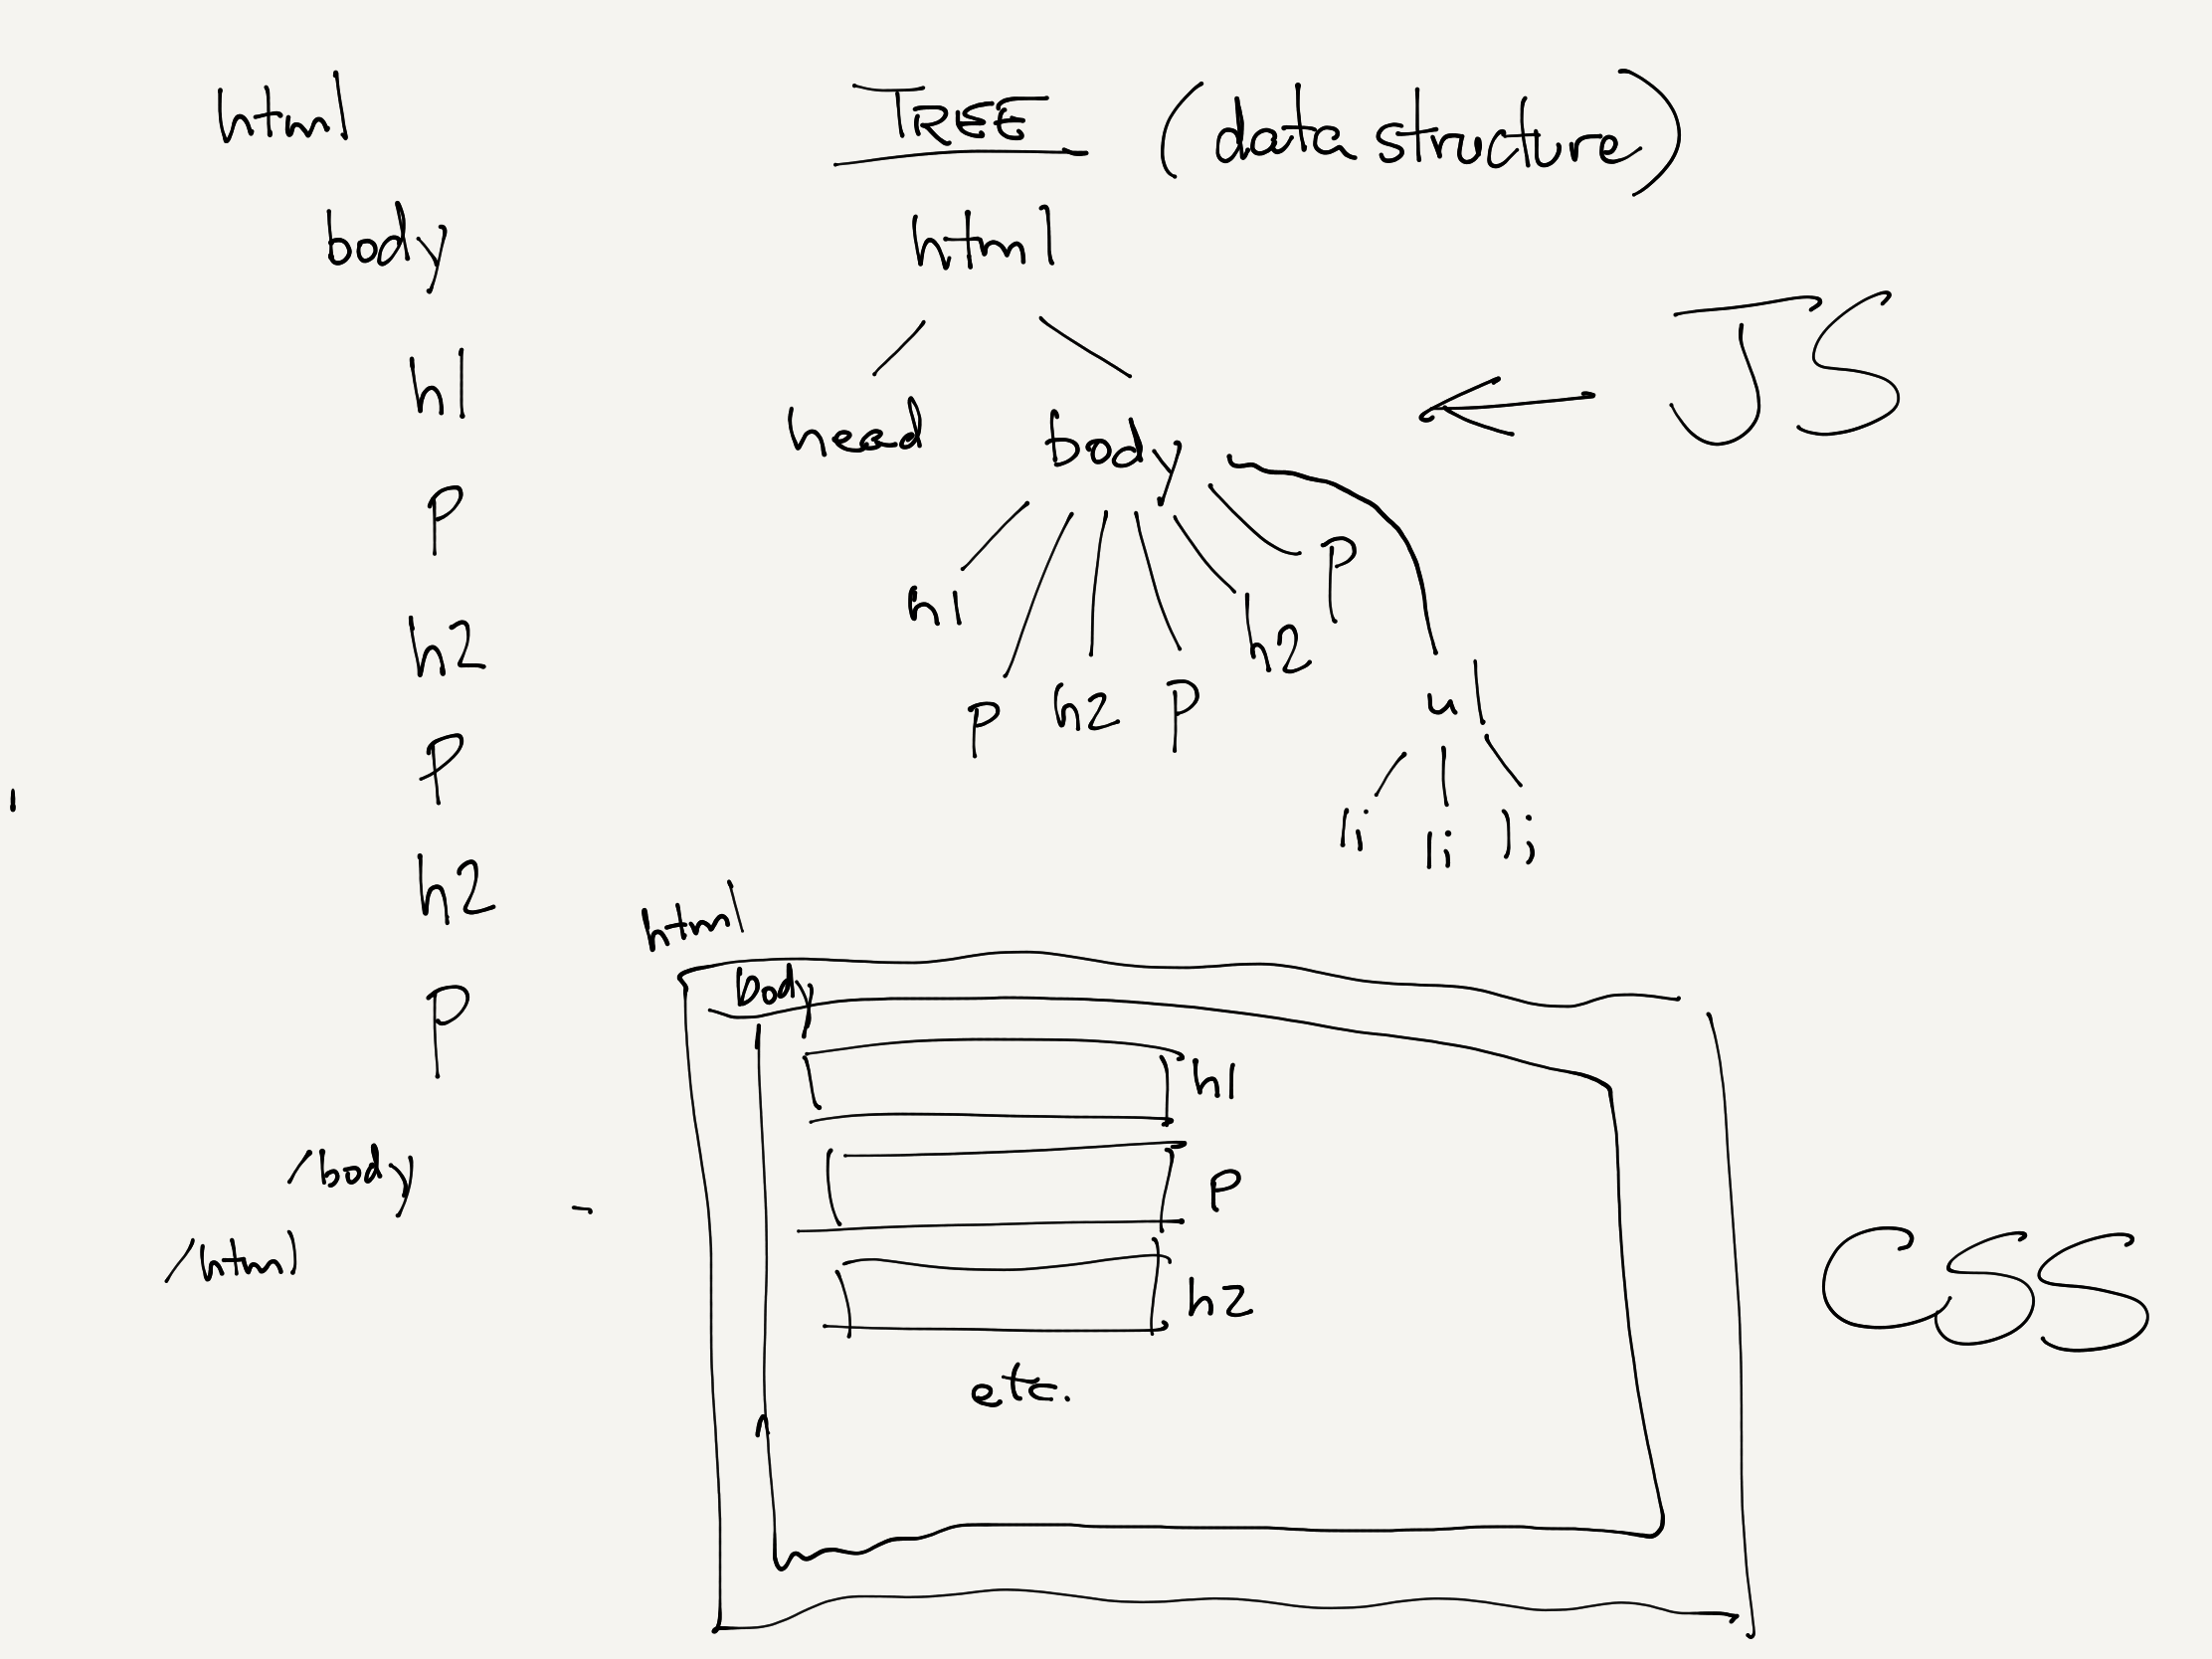 html
body
h1
p
h2
p
h2
p
/body
/html
TREE (data structure)
html
head body
h1 p h2 p h2 p ul
li li li
JS
html
body
h1
p
h2
etc.
CSS